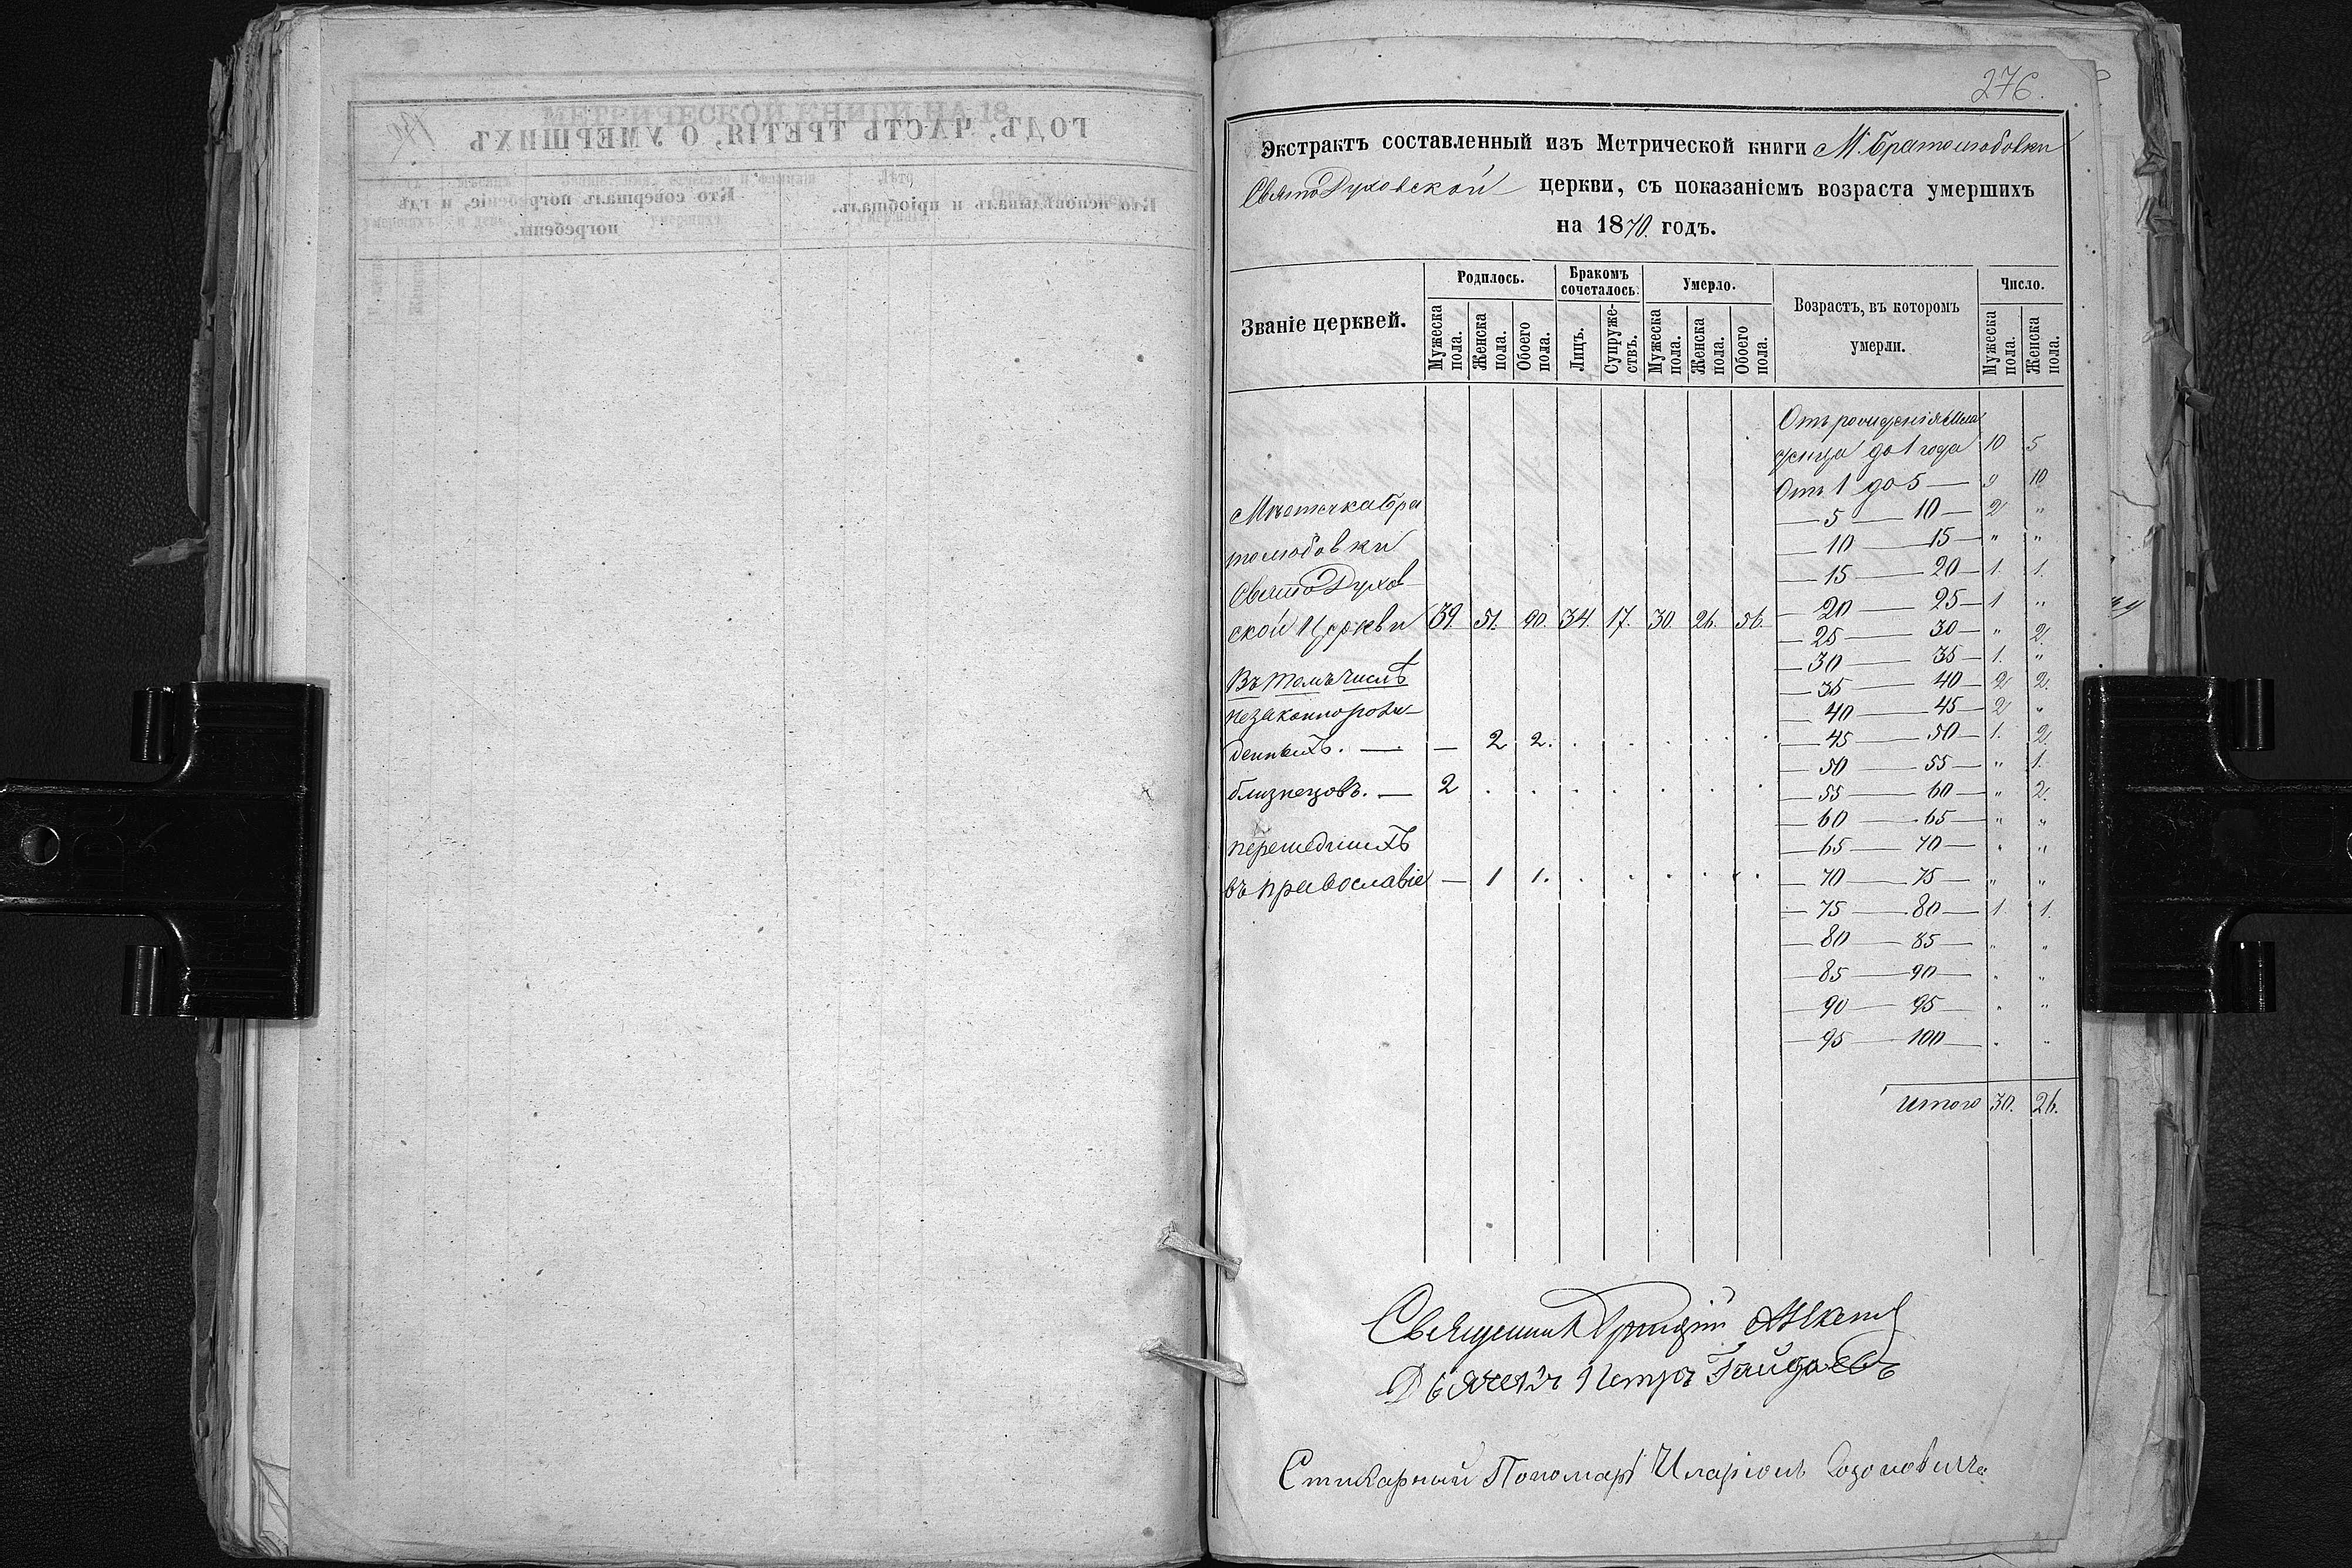 276.
Экстрактъ составленный изъ Метрической книги М. Братолюбовки
СвятоДуховской церкви, съ показаніемъ возраста умершихъ
на 1870. годъ.
Званіе церквей.
Родилось.
Бракомъ сочеталось.
Умерло.
Возрастъ, въ которомъ умерли.
Число.
Мужеска пола.
Женска пола.
Обоего пола.
Лицъ.
Супружествъ.
Мужеска пола.
Женска пола.
Обоего пола.
Мужеска пола.
Женска пола.
Мѣстечка Бра
толюбовки
СвятоДухов
ской Церкви 39. 51. 90. 34. 17. 30. 26. 56.
Въ томъ числѣ
незаконнорож-
денныхъ. — — 2 2.
близнецовъ. — 2
перешедшихъ
въ православіе — 1 1.
Отъ рожденія Мла
денца до 1 года 10 5
Отъ 1 до 5 — 9 10
— 5 — 10 — 2 "
— 10 — 15 — " "
— 15 — 20 — 1. 1.
— 20 — 25 — 1 "
— 25 — 30 — " 2.
— 30 — 35 — 1. "
— 35 — 40 — 2 2.
— 40 — 45 — 2 "
— 45 — 50 — 1. 2
— 50 — 55 — " 1.
— 55 — 60 — " 2.
— 60 — 65 — " "
— 65 — 70 — " "
— 70 — 75 — " "
— 75 — 80 — 1. 1.
— 80 — 85 — " "
— 85 — 90 — " "
— 90 — 95 — " "
— 95 — 100 — " "
Итого 30. 26.
Священник
Дьячекъ Петръ Гайдаевъ
Стихарный Пономарь Иларіонъ
МЕТРИЧЕСКОЙ КНИГИ НА 18
ГОДЪ, ЧАСТЬ ТРЕТІЯ, О УМЕРШИХЪ
Кто исповѣдывалъ и пріобщалъ.
Кто совершалъ погребеніе, и гдѣ
погребены.